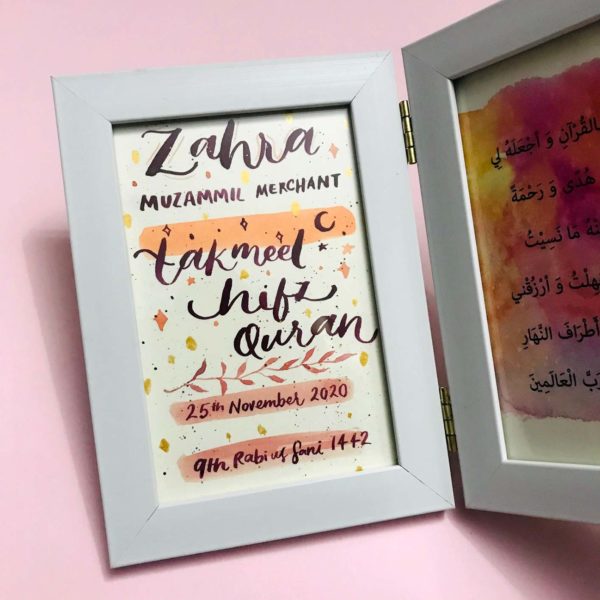 Zahra
MUZAMMIL MERCHANT
takmeel
hifz
Quran
25th November 2020
9th Rabi us Sani 1442
بالقُرْآنِ وَ اجْعَلهُ لِي
هُدًى وَ رَحْمَةً
مَا نَسِيْتُ
وَ ارْزُقْنِي
أَطْرَافَ النَّهَارِ
رَبَّ الْعَالَمِينَ